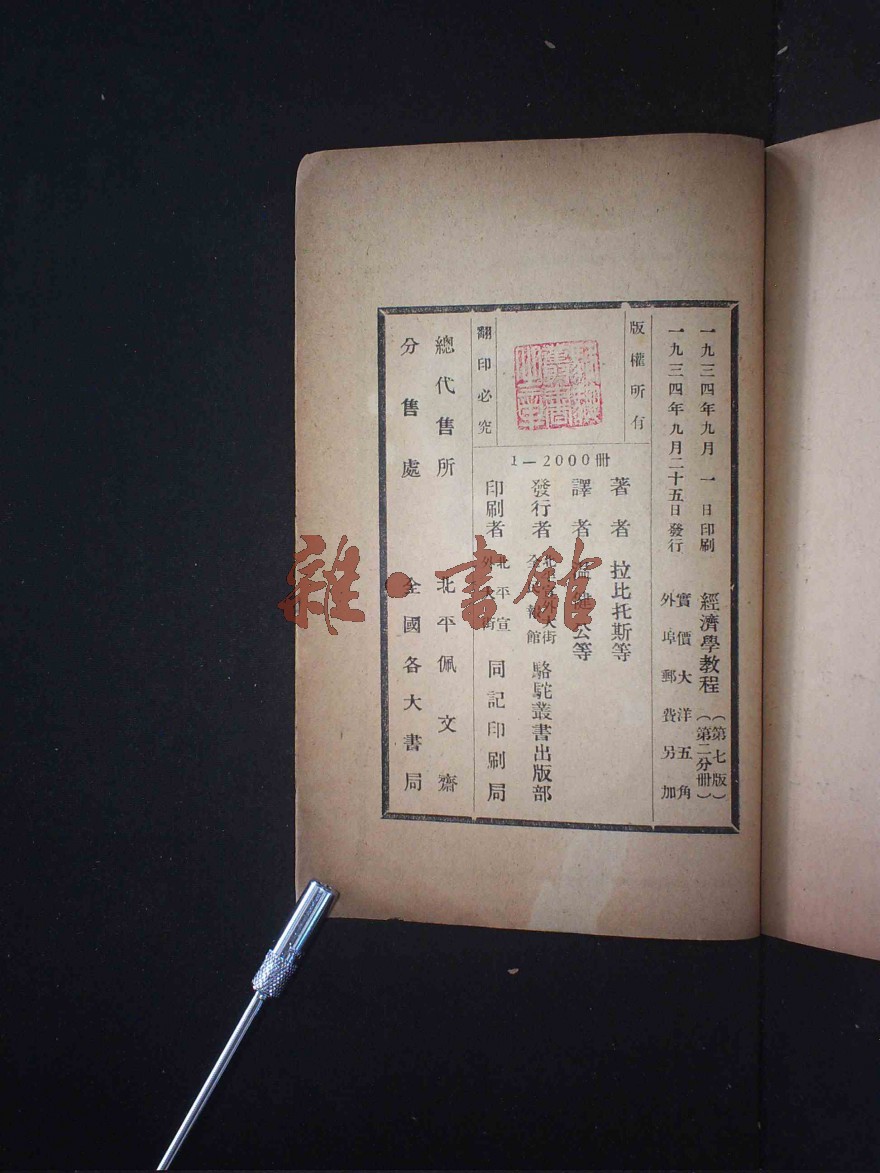 一九三四年九月一日印刷
一九三四年九月二十五日發行
經濟學教程
（第七版）
（第二分冊）
實價大洋五角
外埠郵費另加
版權所有
翻印必究
1—2000冊
著者 拉比托斯等
譯者 健公等
發行者 外大街 全民報館 駱駝叢書出版部
印刷者 北平宣外大街 同記印刷局
總代售所 北平佩文齋
分售處 全國各大書局
雜·書館